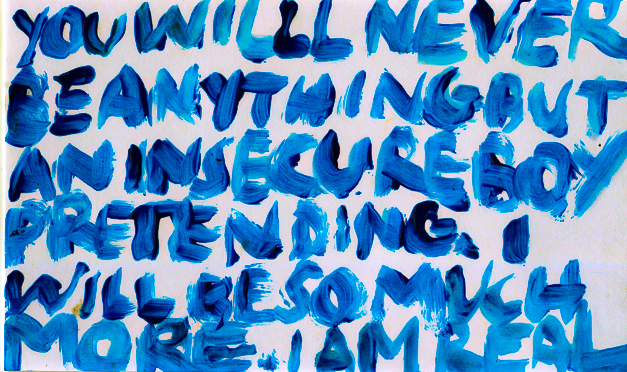 YOU WILLL NEVER
BE ANYTHING BUT
AN INSECURE BOY
PRETENDING. I
WILL BE SO MUCH
MORE. I AM REAL